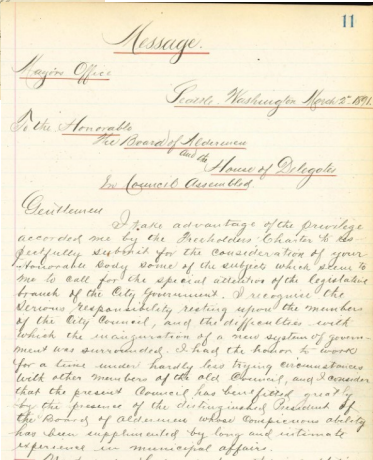 11
Message.
Mayors Office
Seattle, Washington March 2" 1891.
To the Honorable
The Board of Aldermen
and the
House of Delegates
In Council Assembled
Gentlemen
I take advantage of the privilege
accorded me by the Freeholders Charter to res-
pectfully submit for the consideration of your
Honorable body some of the subjects which seem to
me to call for the special attention of the legislative
branch of the City Government. I recognize the
serious responsibility resting upon the members
of the City Council, and the difficulties with
which the inauguration of a new system of govern-
ment was surrounded. I had the honor to work
for a time under hardly less trying circumstances
with other members of the old Council, and I consider
that the present Council has benefitted greatly
by the presence of the distinguished President of
the Board of Aldermen whose conspicious ability
has been supplimented by long and intimate
experience in municipal affairs.